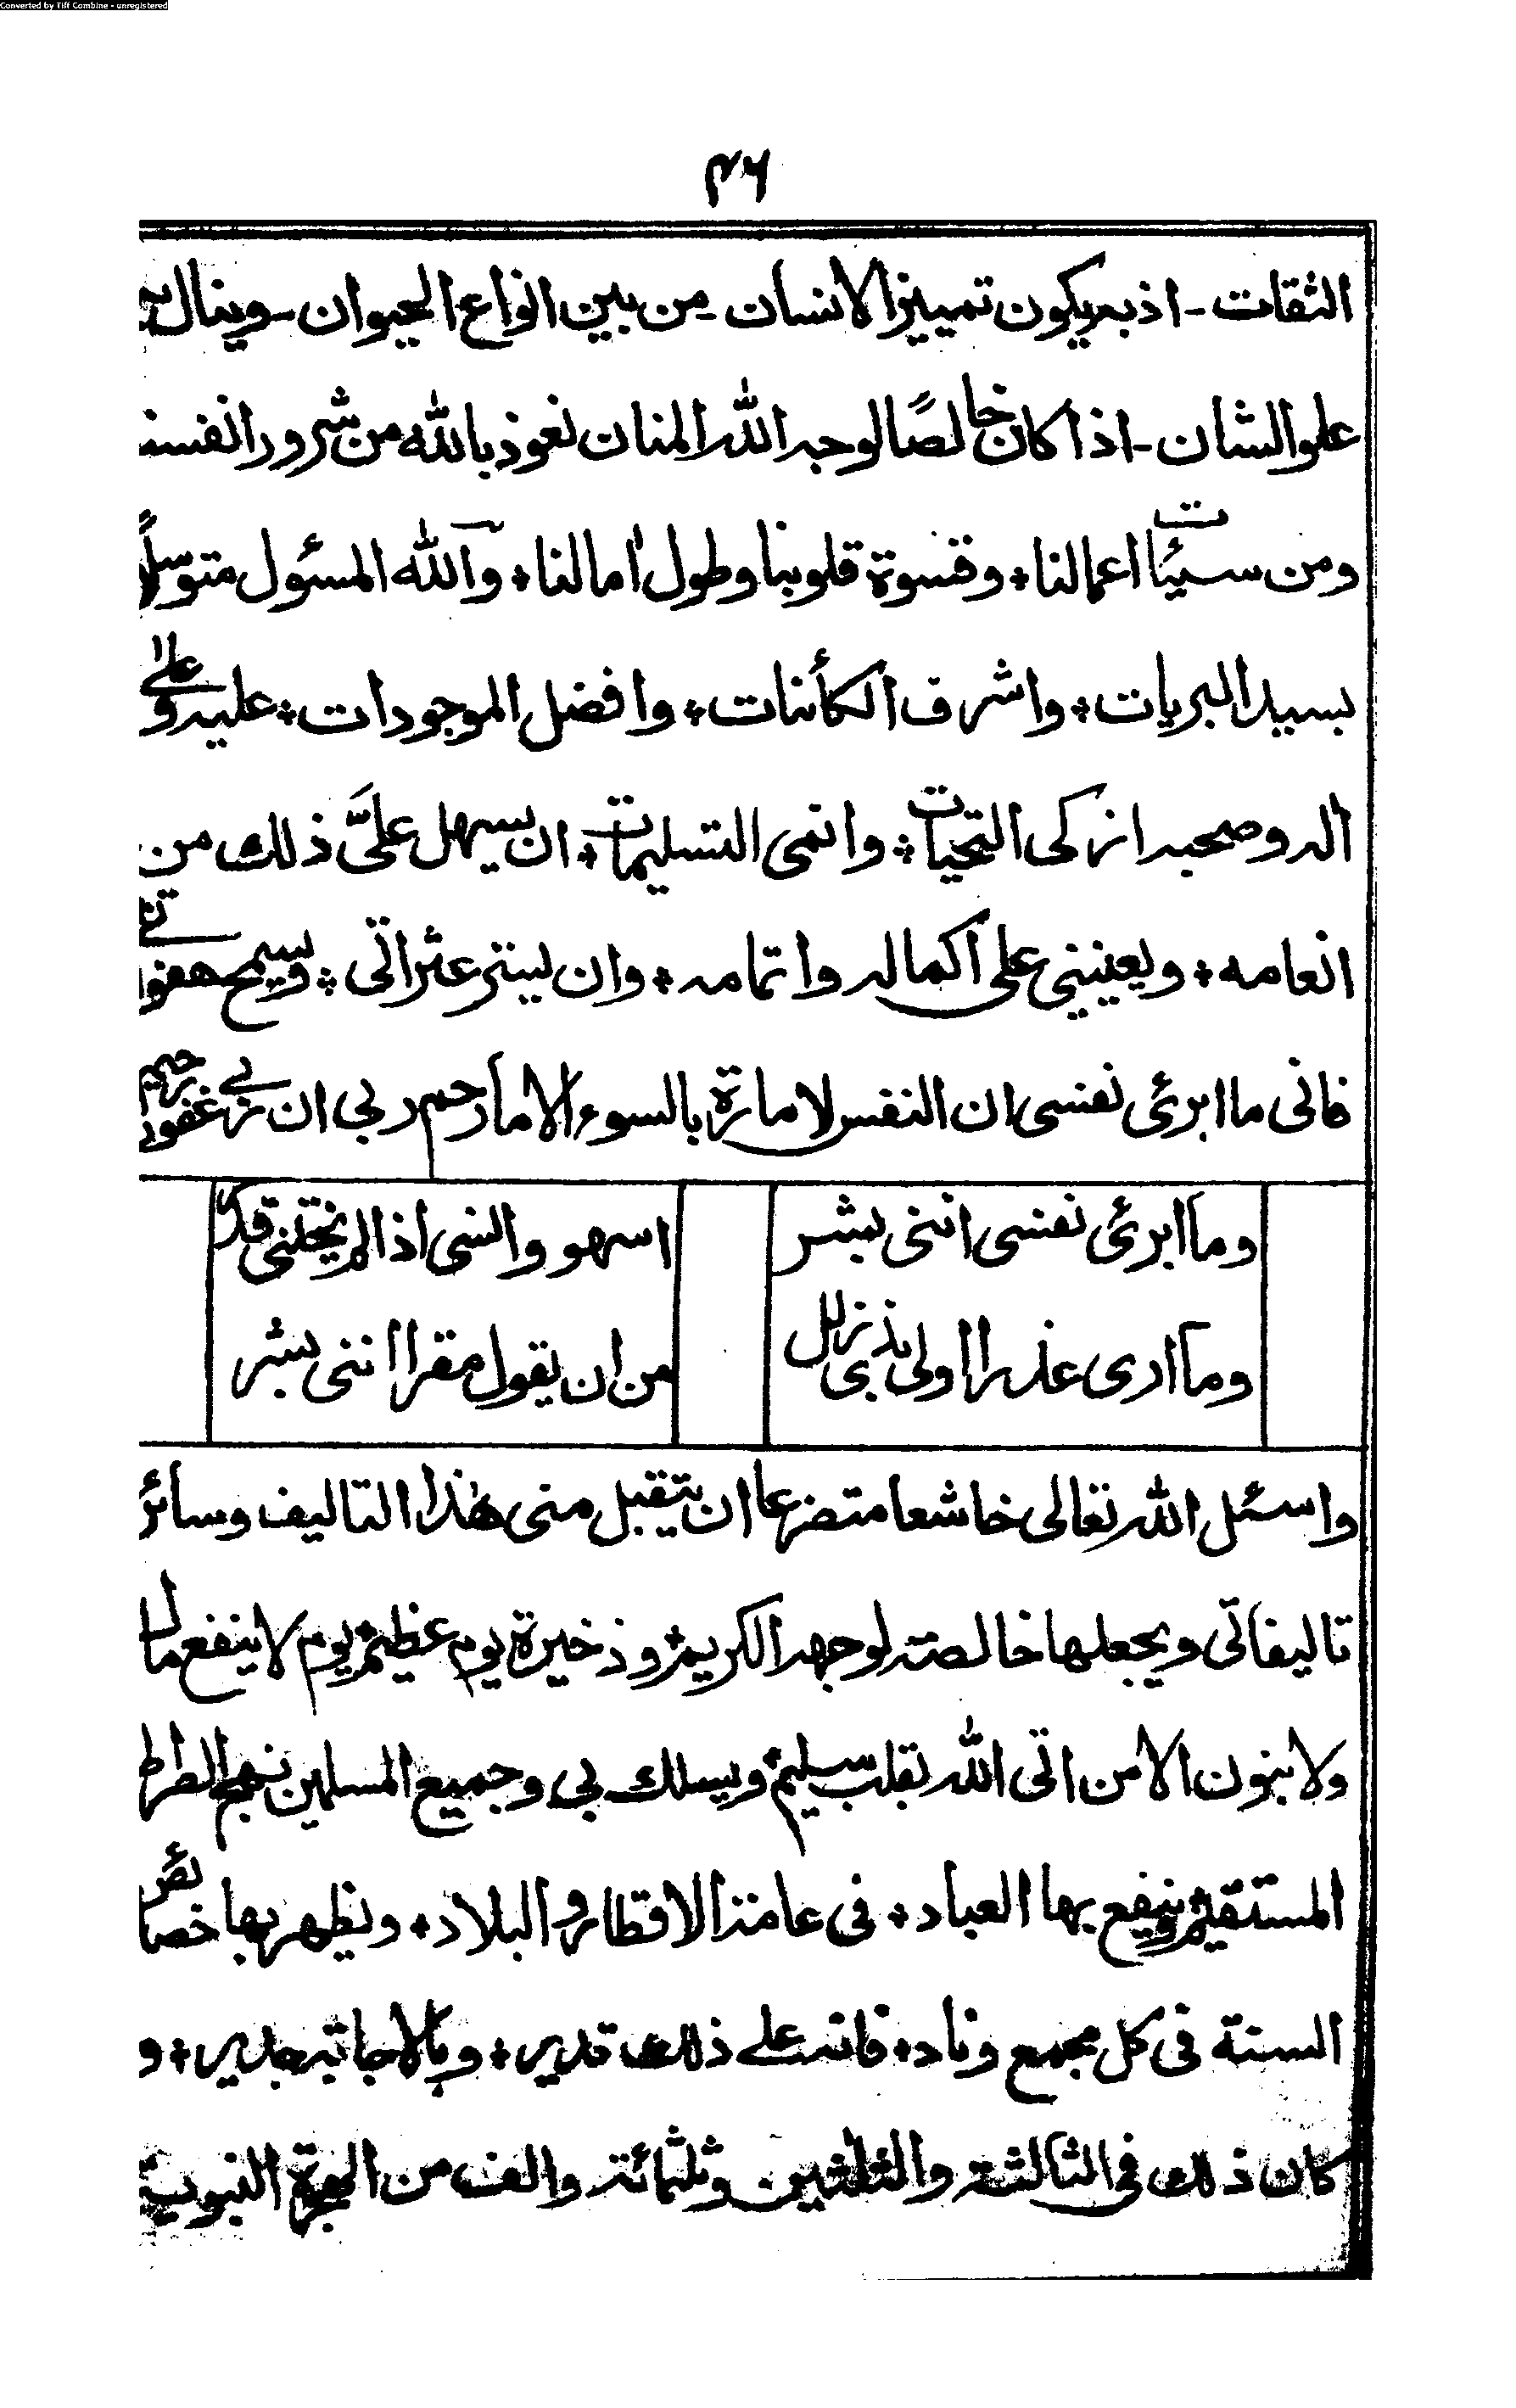 Converted by Tiff Combine - unregistered
۴۶
الثقات - اذ به يكون تمييز الانسان - من بين انواع الحيوان - وينال
علو الشان - اذا كان خالصًا لوجه الله المنان نعوذ بالله من شرور انفسنا
ومن سيئات اعمالنا ٭ وقسوة قلوبنا وطول اٰمالنا ٭ والله المسئول متوسلًا
بسيد البريات ٭ واشرف الكأنات ٭ وافضل الموجودات ٭ عليه وعلى
اٰله وصحبه ازكى التحيات ٭ وانمى التسليمات ٭ ان يسهل علىَّ ذلك من
انعامه ٭ ويعيننى على اكماله واتمامه ٭ وان يستر عثراتى ٭ ويسمح هفواتى
فانى ما ابرئ نفسى ان النفس لامارة بالسوء الا مارحم ربى ان ربى غفور رحيم
وما ابرئ نفسى اننى بشر
اسهو وانسى اذا لم يحمنى قدر
وما ارى عذرا اولى بذى زلل
من ان يقول مقرا اننى بشر
واسئل الله تعالى خاشعا متضرعا ان يتقبل منى هٰذا التاليف وسائر
تاليفاتى ويجعلها خالصة لوجهه الكريم ٭ وذخيرة يوم عظيم ٭ يوم لا ينفع مال
ولا بنون الا من اتى الله بقلب سليم ٭ ويسلك بى وجميع المسلمين نهج الطراط
المستقيم ٭ وينفع بها العباد ٭ فى عامة الاقطار والبلاد ٭ ويظهر بها خصائص
السنة فى كل مجمع وناد ٭ فانه على ذلك قدير ٭ وبالاجابة جدير ٭ و
كان ذلك فى الثالثة والثلثين وثلثمائة والف من الهجرة النبوية